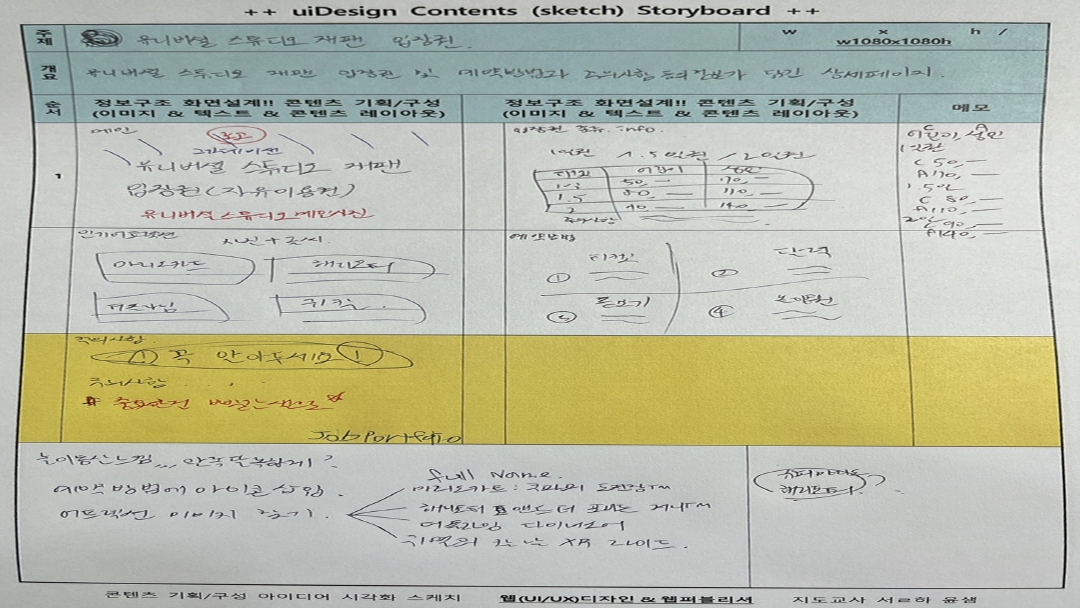 ++ uiDesign Contents (sketch) Storyboard ++
주제 유니버셜 스튜디오 재팬 입장권. w x h /
w1080x1080h
개요 유니버셜 스튜디오 재팬 입장권 및 예약방법과 주의사항 등의 정보가 담긴 상세페이지.
순서 정보구조 화면설계!! 콘텐츠 기획/구성
(이미지 & 텍스트 & 콘텐츠 레이아웃)
정보구조 화면설계!! 콘텐츠 기획/구성
(이미지 & 텍스트 & 콘텐츠 레이아웃)
메모
1
메인
로고
그라데이션
유니버셜 스튜디오 재팬
입장권(자유이용권)
유니버셜 스튜디오 메인사진
입장권 종류. info.
1일권 1.5일권 / 2일권
어린이
1.5 80,— 110,—
2 90— 140,—
주의사항
어린이, 성인
1일권
C 50,—
A 70,—
1.5일
C 80,—
A 110,—
2일
C 90,—
A 140,—
인기어트랙션
사진+글씨.
마리오카트 해리포터
예약방법
① ②
③ ④
주의사항
! 꼭 알아두세요 !
주의사항 . . .
Job portfolio
놀이동산느낌,,, 안쪽만 복잡하게?
예약방법에 아이콘 삽입.
어트랙션 이미지 찾기.
Name.
마리오카트: 쿠파의 도전장TM
해리포터 앤드 더 포비든 저니TM
XR 라이드.
슈퍼마리오
해리포터.
콘텐츠 기획/구성 아이디어 시각화 스케치 웹(UI/UX)디자인 & 웹퍼블리셔 지도교사 서르하 윤샘